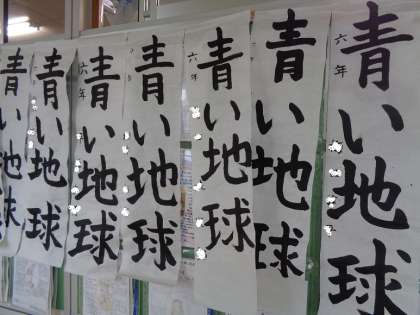 青い地球
六年
青い地球
青い地球
六年
青い地球
青い地球
六年
青い地球
青い地球